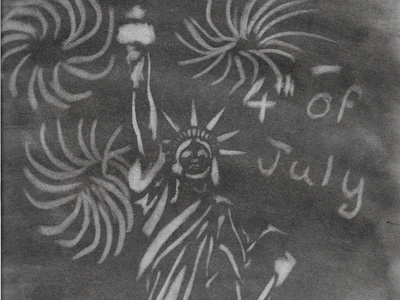 4th of
July